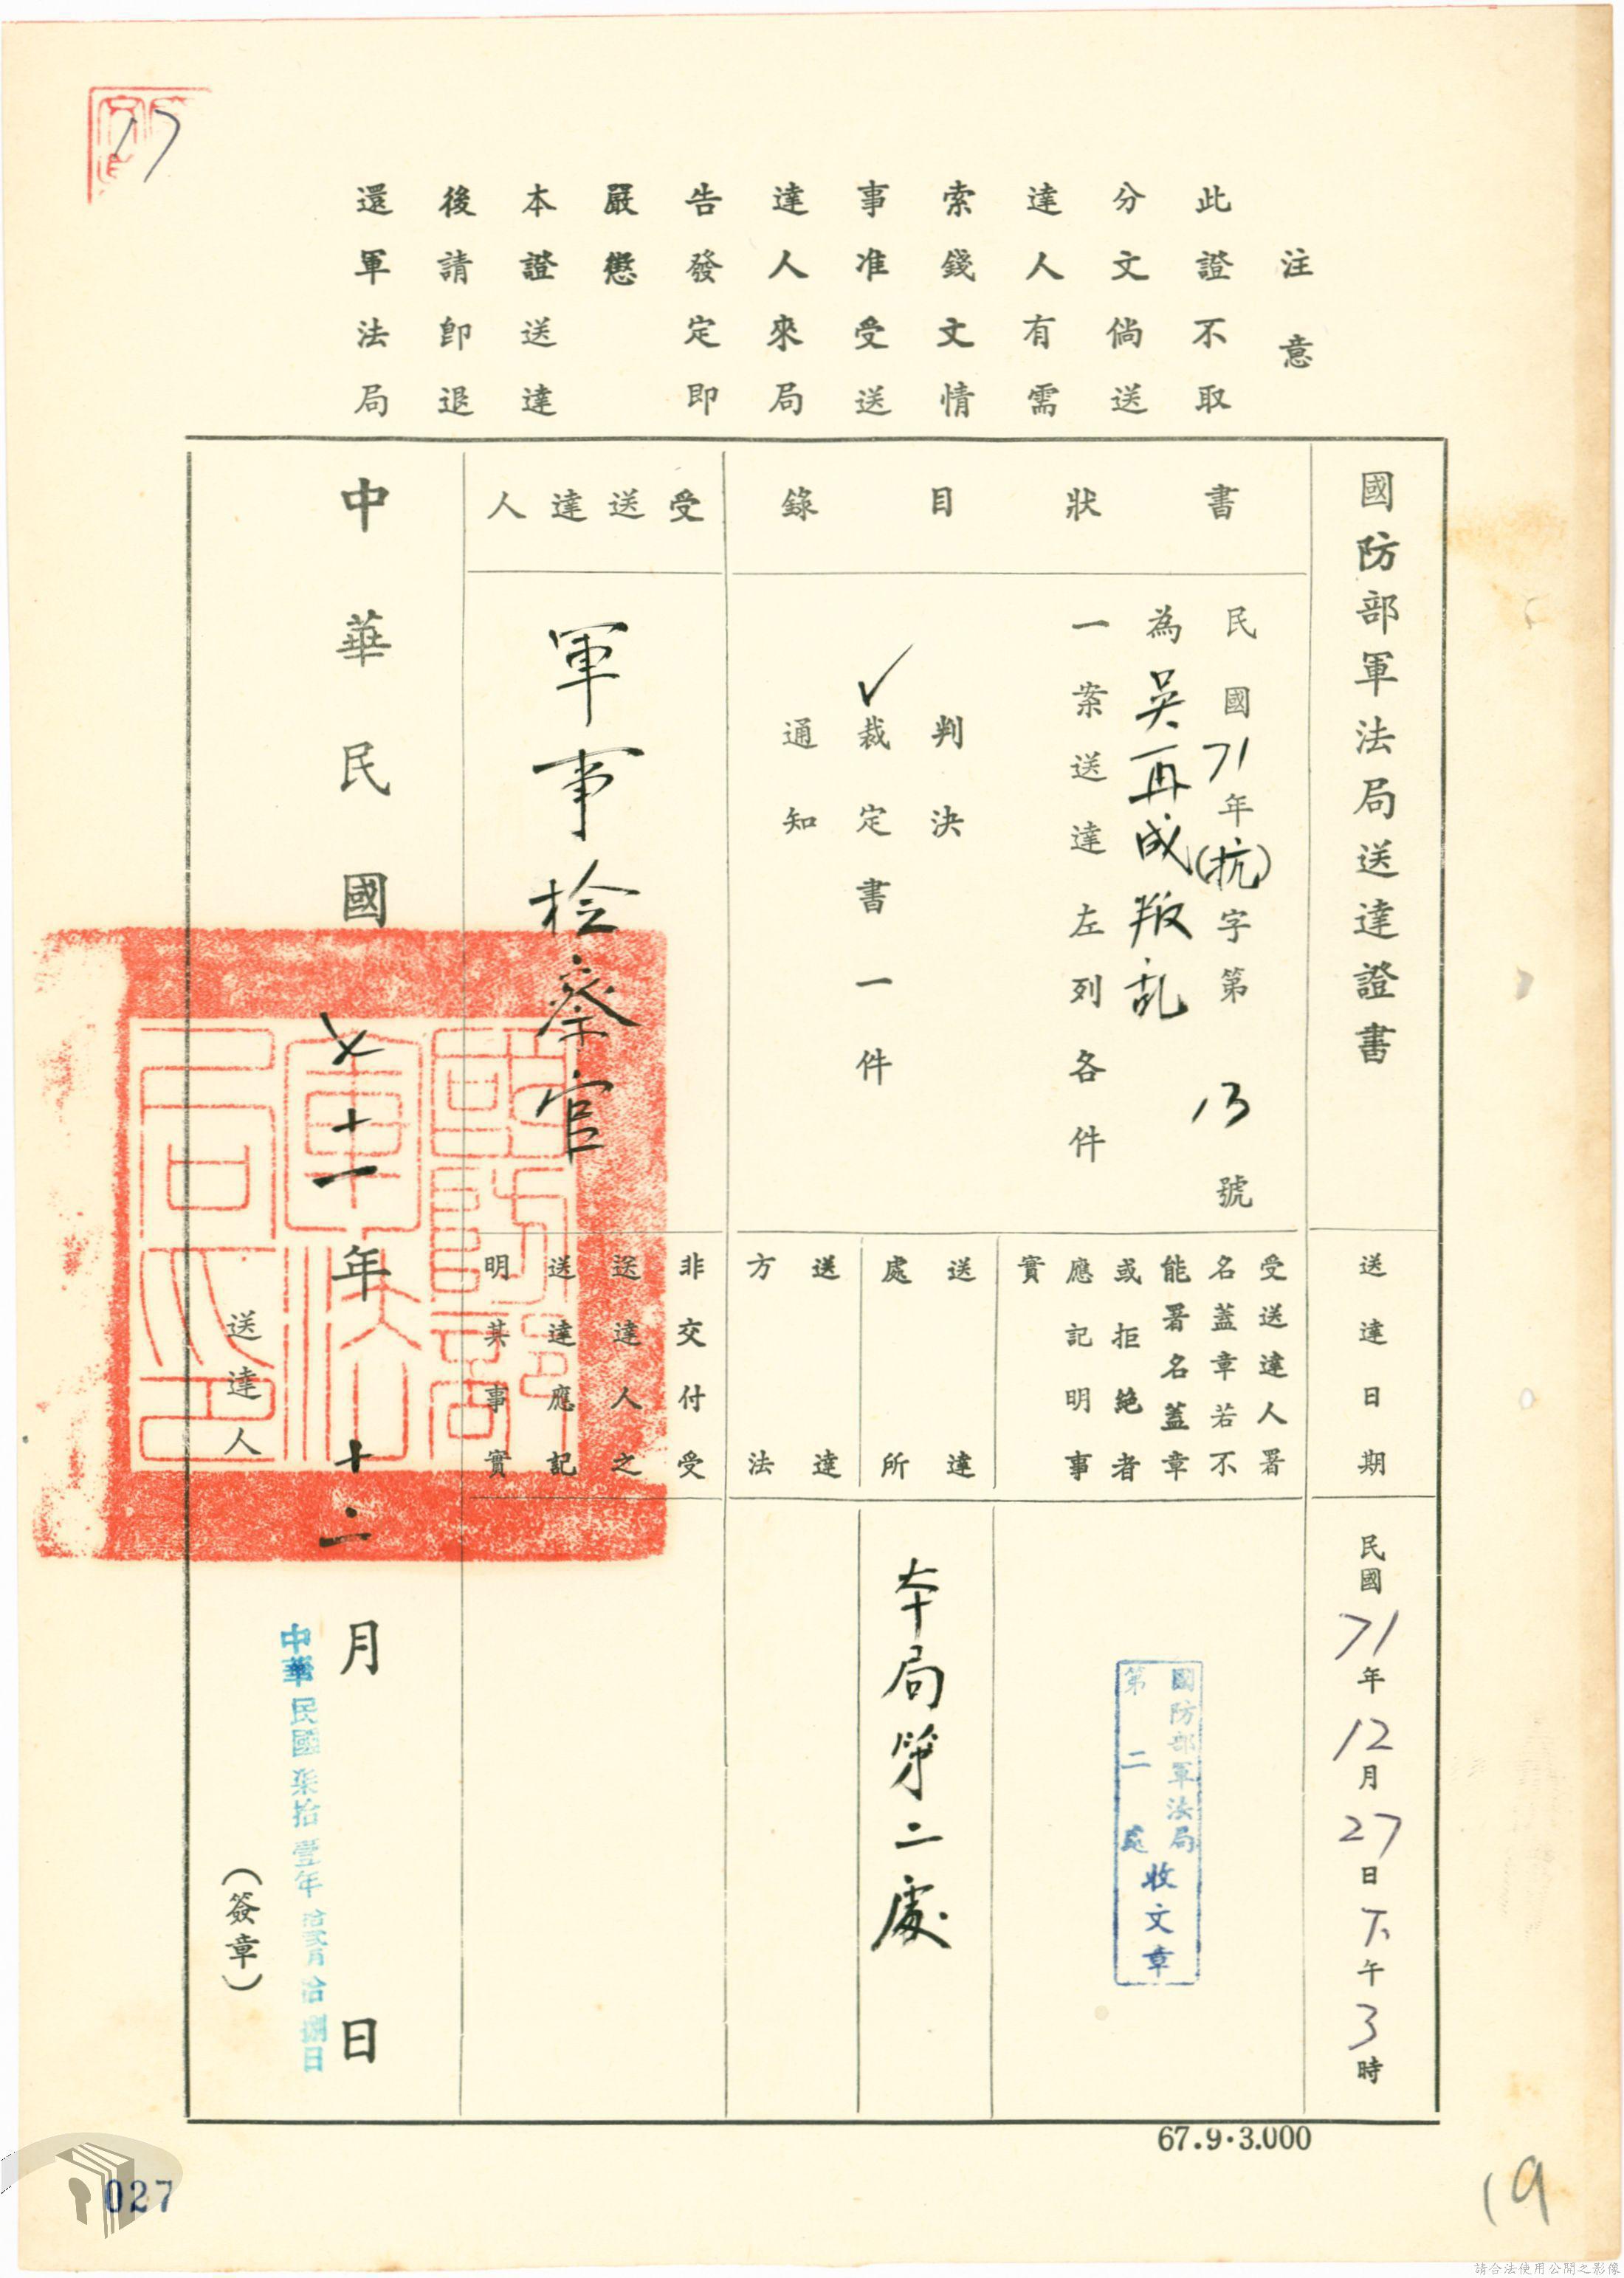 注意
此證不取
分文倘送
達人有需
索錢文情
事准受送
達人來局
告發定即
嚴懲
本證送達
後請卽退
還軍法局
國防部軍法局送達證書
書狀目錄
民國71年(抗)字第13號
為吳再成叛乱
一案送達左列各件
判決
✓裁定書一件
通知
受送達人
軍事检察官
送達日期
民國71年12月27日下午3時
受送達人署
名蓋章若不
能署名蓋章
或拒絕者
應記明事
實
國防部軍法局
第二處
收文章
送達
處所
本局第二處
送達
方法
非交付受
送達人之
送達應記
明其事實
中華民國七十一年十二月日
中華民國柒拾壹年拾貳月拾捌日
送達人
(簽章)
67.9.3.000
17
027
19
請合法使用公開之影像